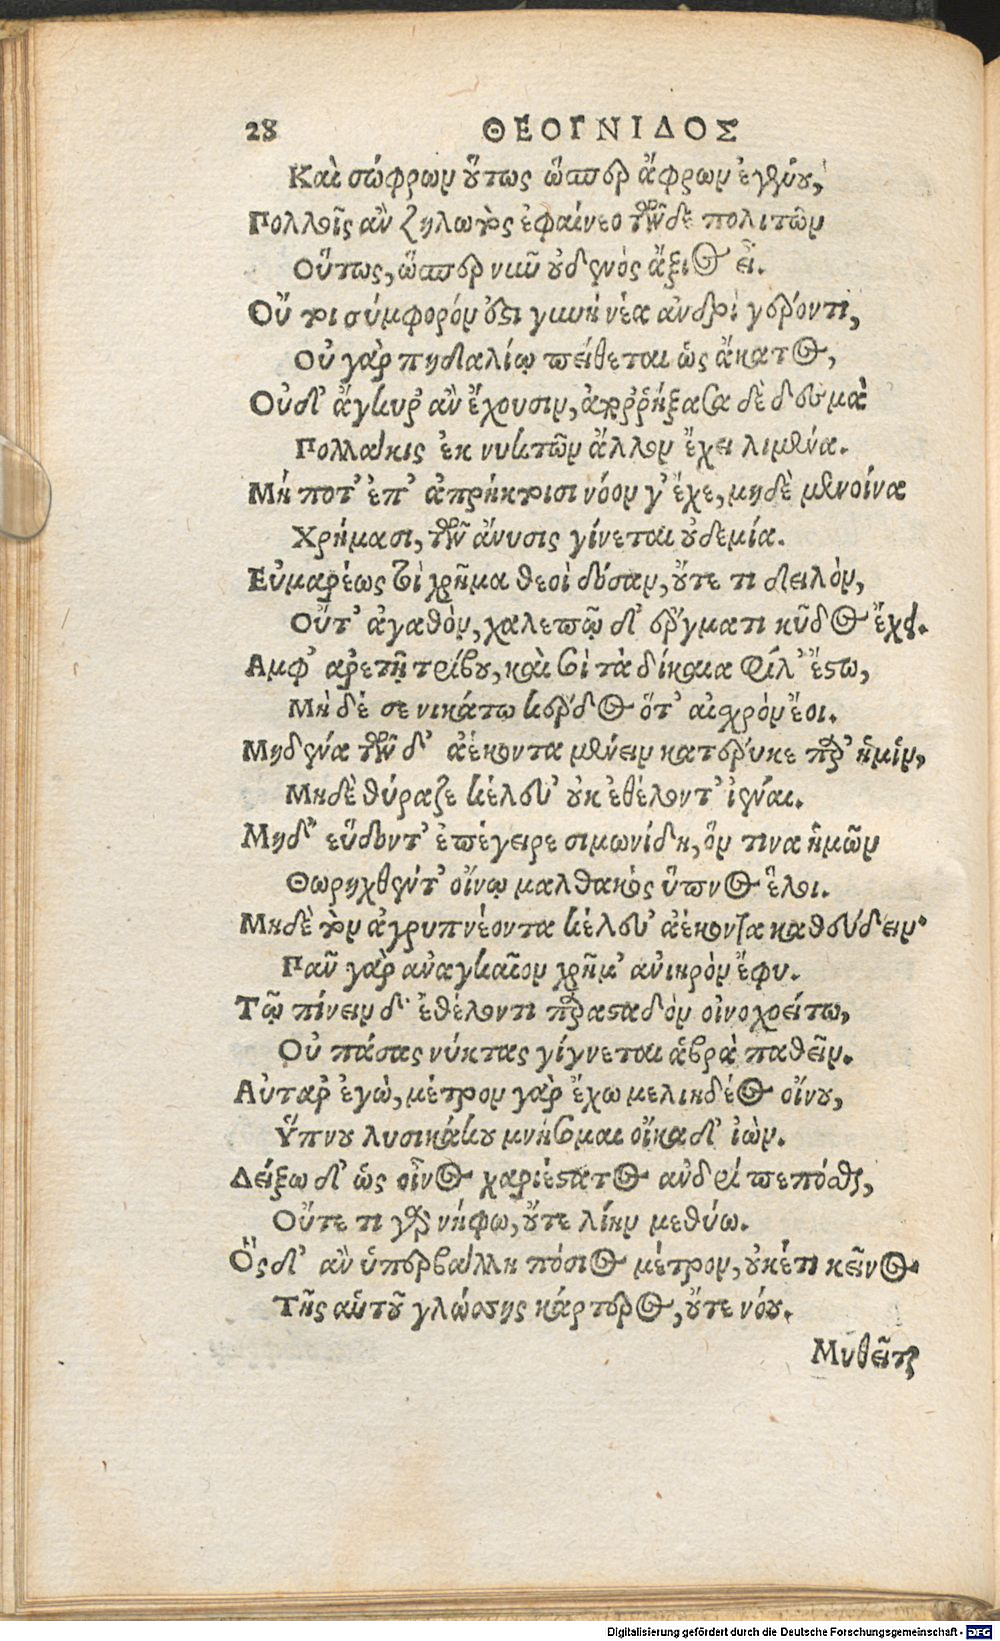 28 ΘΕΟΓΝΙΔΟΣ
Καὶ σώφρων οὕτως ὥσπερ ἄφρων ἐγένου,
Πολλοῖς ἂν ζηλωτὸς ἐφαίνεο τῶνδε πολιτῶν
Οὕτως, ὥσπερ νιῦ οὐδενὸς ἄξιος εἶ.
Οὔ τοι σύμφορόν ἐστι γυνὴ νέα ἀνδρὶ γέροντι,
Οὐ γὰρ πηδαλίῳ πείθεται ὡς ἄκατος,
Οὐδ' ἄγκυραι ἂν ἔχουσιν, ἀπορρήξασα δὲ δεσμὰ
Πολλάκις ἐκ νυκτῶν ἄλλον ἔχει λιμένα.
Μή ποτ' ἐπ' ἀπρήκτοισι νόον γ' ἔχε, μηδὲ μενοίνα
Χρήμασι, τῶν ἄνυσις γίνεται οὐδεμία.
Εὐμαρέως τοὶ χρῆμα θεοὶ δόσαν, οὔτε τι δειλὸν,
Οὔτ' ἀγαθὸν, χαλεπῷ δ' ἔργματι κῦδος ἔχει.
Αμφ' ἀρετῇ τρίβου, καὶ σοὶ τὰ δίκαια φίλ' ἔστω,
Μὴ δέ σε νικάτω κέρδος ὅτ' αἰσχρὸν ἔοι.
Μηδένα τῶν δ' ἀέκοντα μένειν κατέρυκε παρ' ἡμῖν,
Μηδὲ θύραζε κέλευ' οὐκ ἐθέλοντ' ἰέναι.
Μηδ' εὕδοντ' ἐπέγειρε σιμωνίδη, ὅν τινα ἡμῶν
Θωρηχθέντ' οἴνῳ μαλθακὸς ὕπνος ἕλοι.
Μηδὲ τὸν ἀγρυπνέοντα κέλευ' ἀέκοντα καθεύδειν·
Παῦ γὰρ ἀναγκαῖον χρῆμ' ἀνιηρὸν ἔφυ.
Τῷ πίνειν δ' ἐθέλοντι παρασταδὸν οἰνοχοείτω,
Οὐ πάσας νύκτας γίγνεται ἁβρὰ παθεῖν.
Αὐτὰρ ἐγὼ, μέτρον γὰρ ἔχω μελιηδέος οἴνου,
Ὕπνου λυσικάκου μνήσομαι οἴκαδ' ἰών.
Δείξω δ' ὡς οἶνος χαριέστατος ἀνδρί πεπόσθαι,
Οὔτε τι γὰρ νήφω, οὔτε λίην μεθύω.
Ὃς δ' ἂν ὑπερβάλλῃ πόσιος μέτρον, οὐκέτι κεῖνος·
Τῆς αὑτοῦ γλώσσης κάρτερος, οὔτε νόου.
Μυθεῖται